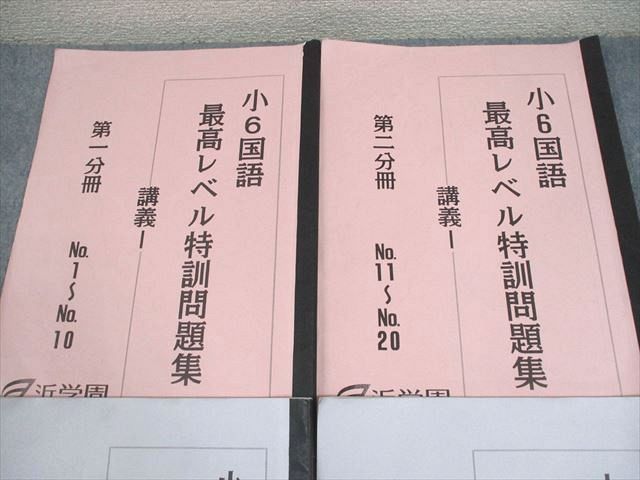 小6国語
最高レベル特訓問題集
講義Ⅰ
第一分冊
No.1〜No.10
浜学園
小6国語
最高レベル特訓問題集
講義Ⅰ
第二分冊
No.11〜No.20
浜学園